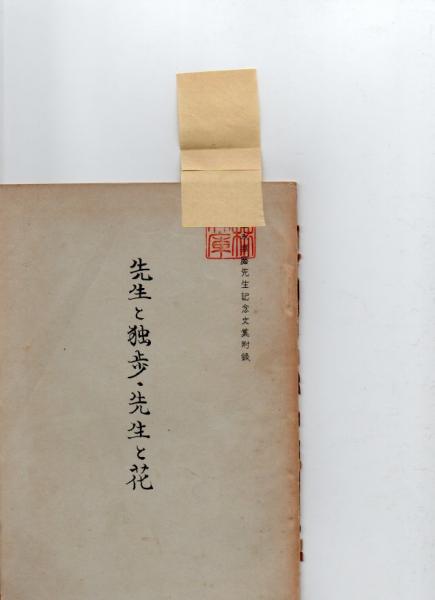 先生記念文集附錄
先生と独歩・先生と花